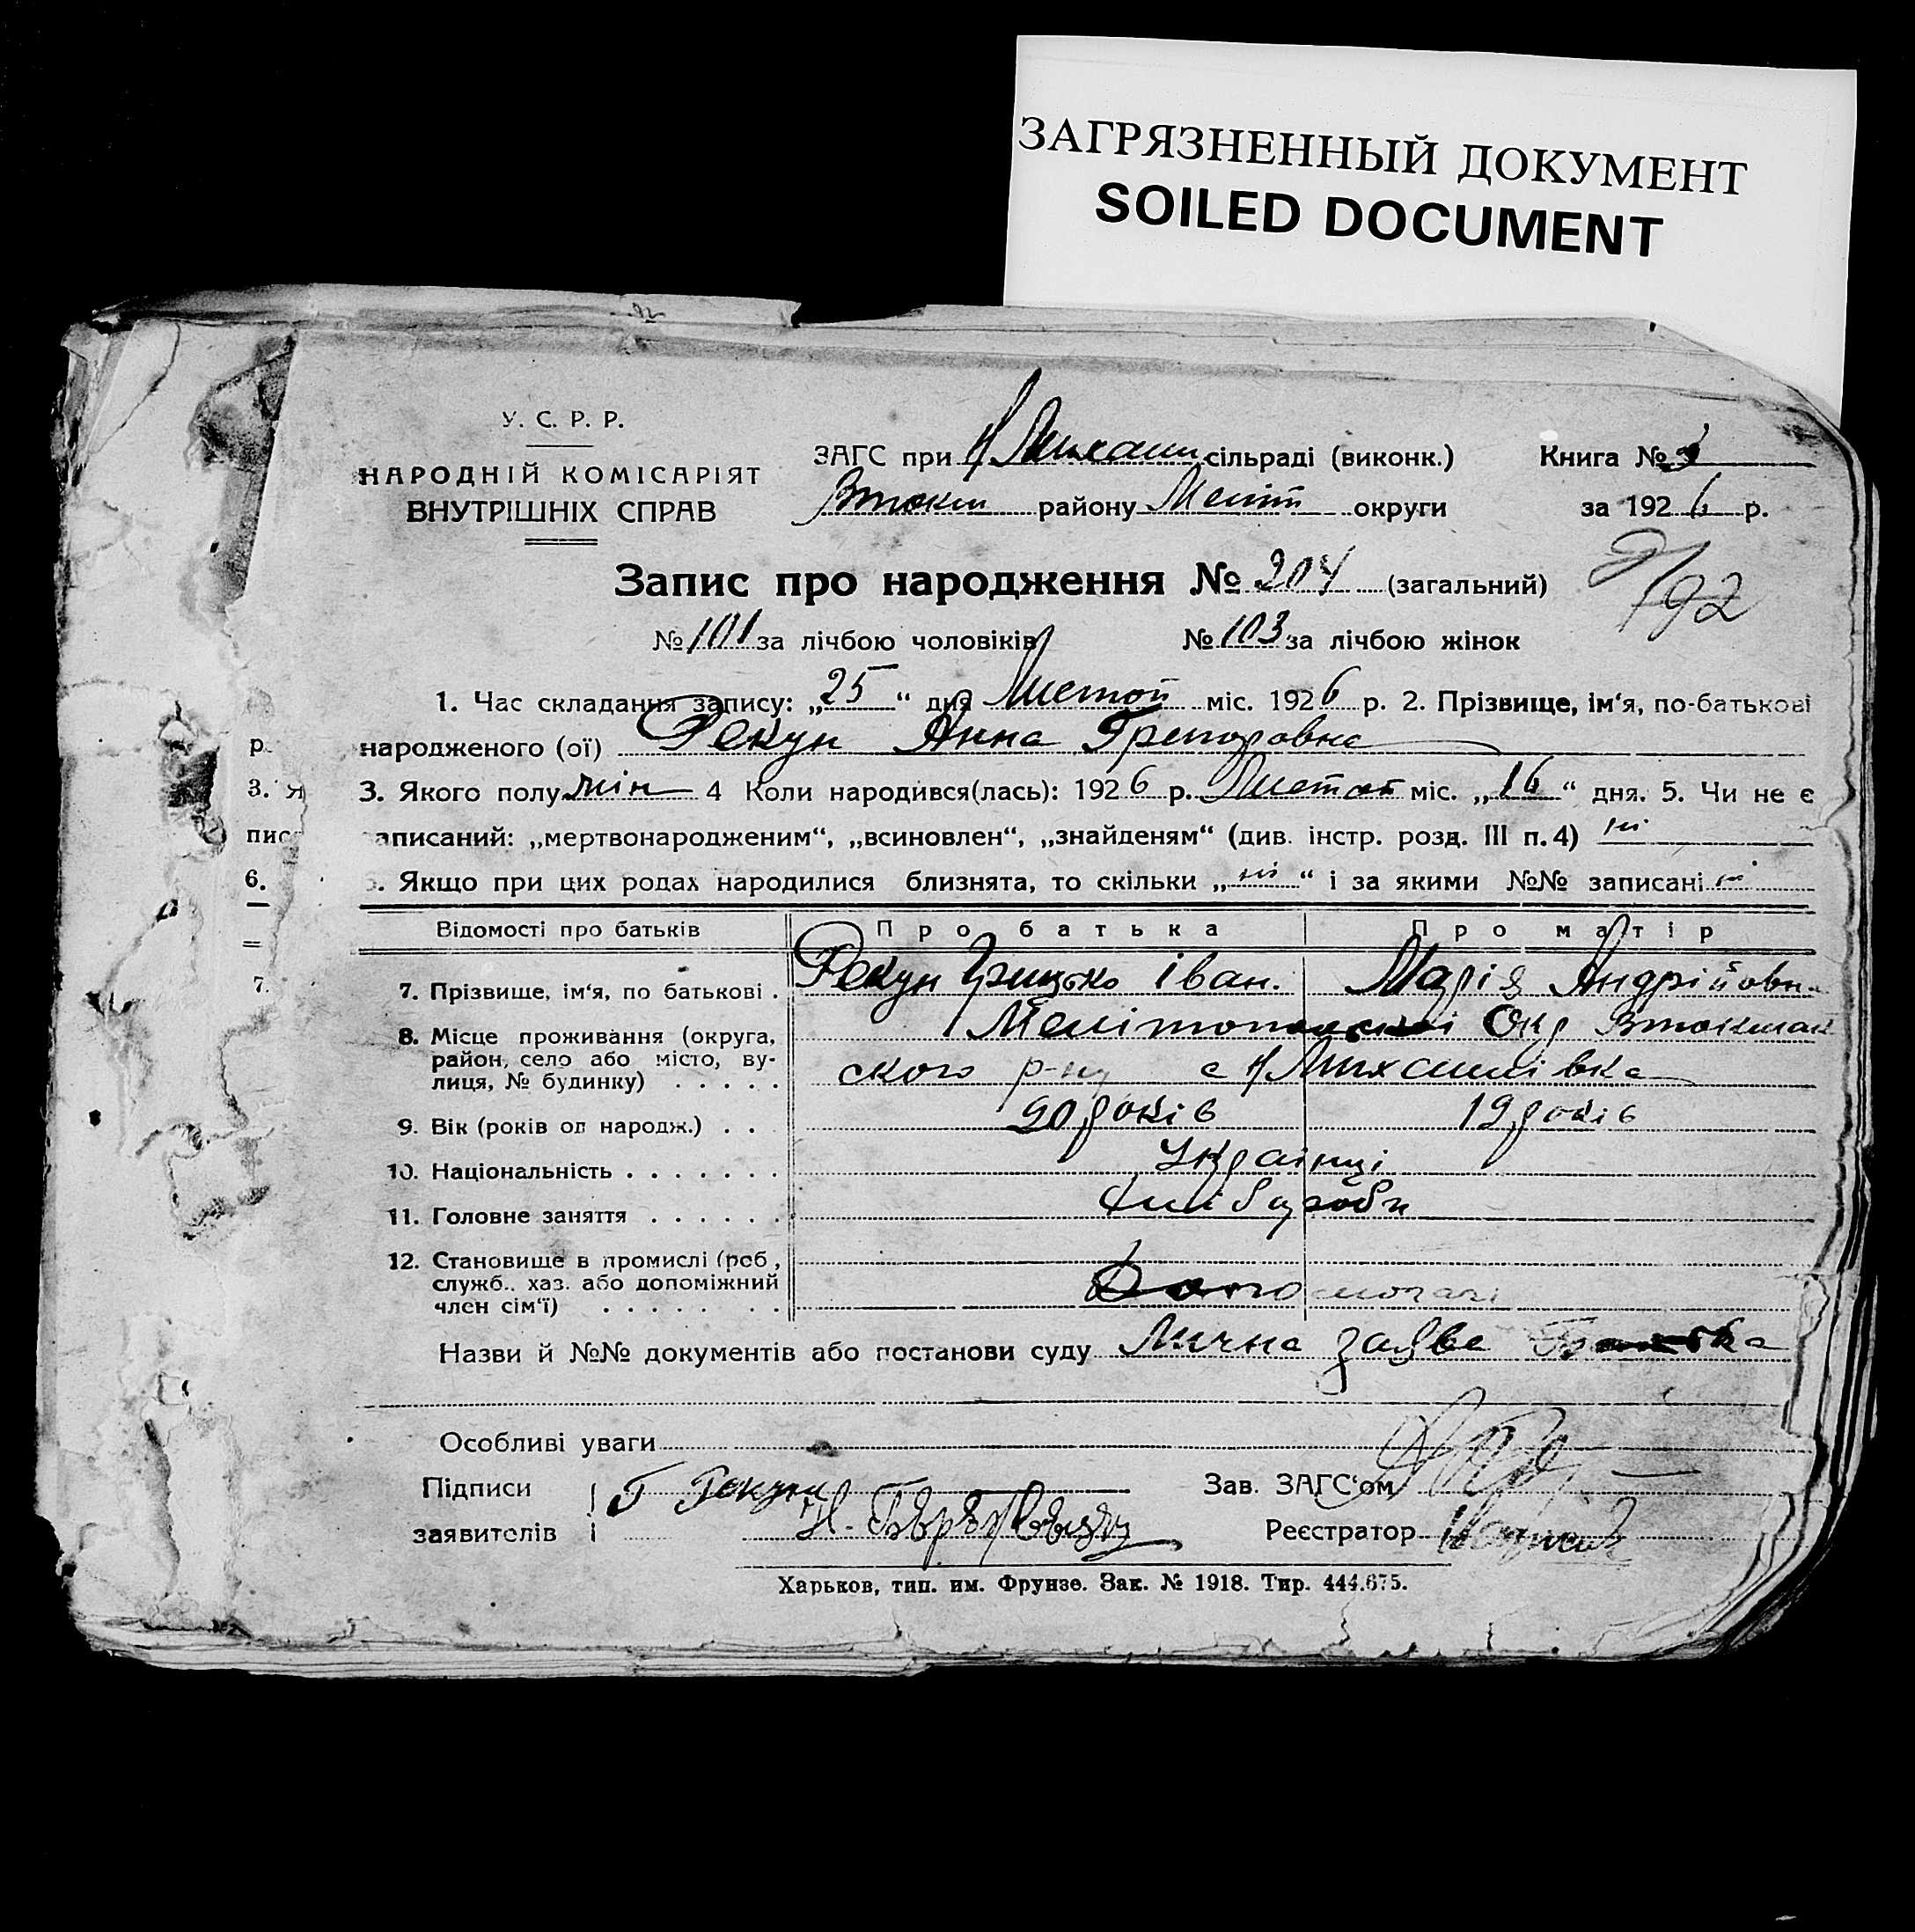 ЗАГРЯЗНЕННЫЙ ДОКУМЕНТ
SOILED DOCUMENT
У. С. Р. Р.
НАРОДНІЙ КОМІСАРІЯТ
ВНУТРІШНІХ СПРАВ
ЗАГС при сільраді (виконк.) Книга №
Втокм району Меліт округи за 1926 р.
Запис про народження № 204 (загальний)
192
№ 101 за лічбою чоловіків № 103 за лічбою жінок
1. Час складання запису: „25“ дня Листоп міс. 1926 р. 2. Прізвище, ім'я, по-батькові
р.
народженого (ої) Рекун Анна Григоровна
3. Я
3. Якого полу жін 4 Коли народився(лась): 1926 р. Листоп міс. „16“ дня. 5. Чи не є
пис
аписаний: „мертвонародженим“, „всиновлен“, „знайденям“ (див. інстр. розд. III п. 4) ні
6.
. Якщо при цих родах народилися близнята, то скільки „ні“ і за якими №№ записані ні
Відомості про батьків Про батька Про матір
7.
7. Прізвище, ім'я, по батькові . Рекун Грицько Іван. Марія Андрійовна
8. Місце проживання (округа, Мелітопольскоі Окр Втокмак
район, село або місто, ву-
лиця, № будинку) . . . . . ского р-ну с Н Михайлівка
9. Вік (років од народж.) . . . 20 років 19 років
10. Національність . . . . . . . Українці
11. Головне заняття . . . . . . Хлібороби
12. Становище в промислі (роб,
служб., хаз. або допоміжний
член сім'ї) . . . . . . . Допомогачі
Назви й №№ документів або постанови суду Лична заява Батька
Особливі уваги
Підписи Г Рекун Зав. ЗАГС'ом
заявителів Н. Реєстратор
Харьков, тип. им. Фрунзе. Зак. № 1918. Тир. 444.675.